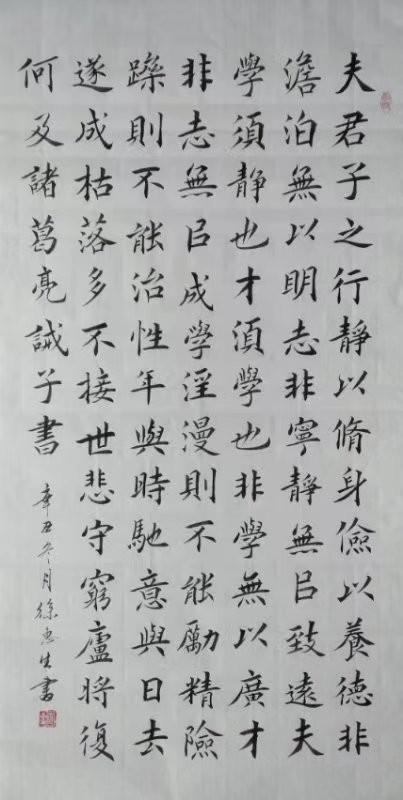 夫君子之行靜以脩身儉以養德非
澹泊無以明志非寧靜無㠯致遠夫
學須靜也才須學也非學無以廣才
非志無㠯成學淫漫則不能勵精險
躁則不能治性年與時馳意與日去
遂成枯落多不接世悲守窮廬將復
何及諸葛亮誡子書
辛丑冬月徐惠生書